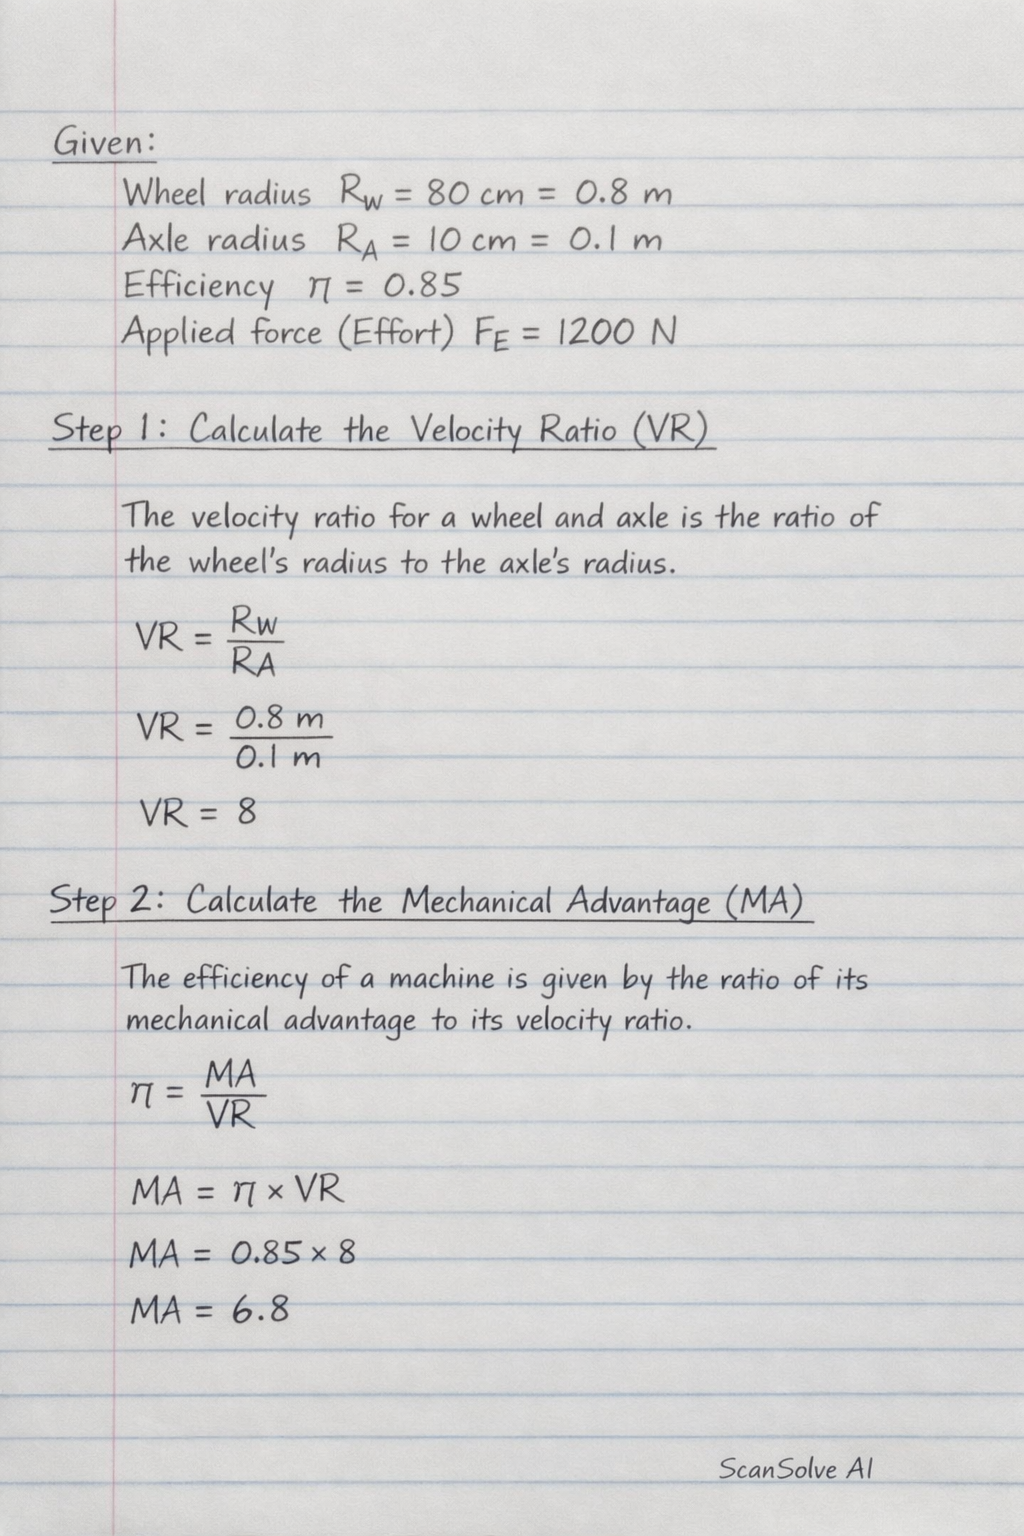 Given:
Wheel radius R_W = 80 cm = 0.8 m
Axle radius R_A = 10 cm = 0.1 m
Efficiency η = 0.85
Applied force (Effort) F_E = 1200 N
Step 1: Calculate the Velocity Ratio (VR)
The velocity ratio for a wheel and axle is the ratio of
the wheel's radius to the axle's radius.
VR = R_W / R_A
VR = 0.8 m / 0.1 m
VR = 8
Step 2: Calculate the Mechanical Advantage (MA)
The efficiency of a machine is given by the ratio of its
mechanical advantage to its velocity ratio.
η = MA / VR
MA = η × VR
MA = 0.85 × 8
MA = 6.8
ScanSolve AI